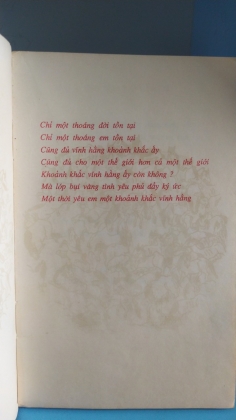 Chỉ một thoáng đời tồn tại
Chỉ một thoáng em tồn tại
Cũng đủ vĩnh hằng khoảnh khắc ấy
Cũng đủ cho một thế giới hơn cả một thế giới
Khoảnh khắc vĩnh hằng ấy còn không ?
Mà lớp bụi vàng tình yêu phủ đầy ký ức
Một thời yêu em một khoảnh khắc vĩnh hằng